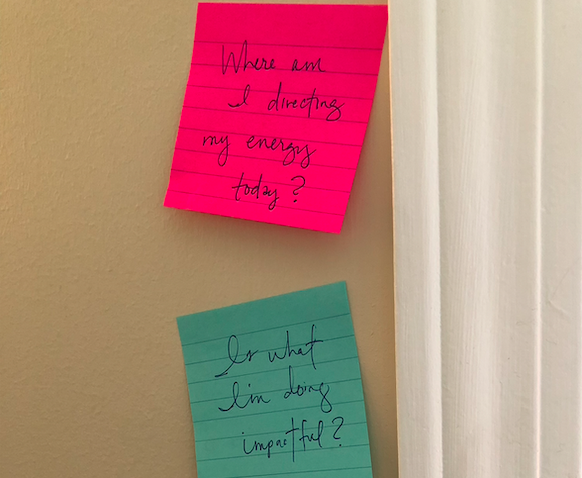 Where am
I directing
my energy
today?
Is what
I'm doing
impactful?